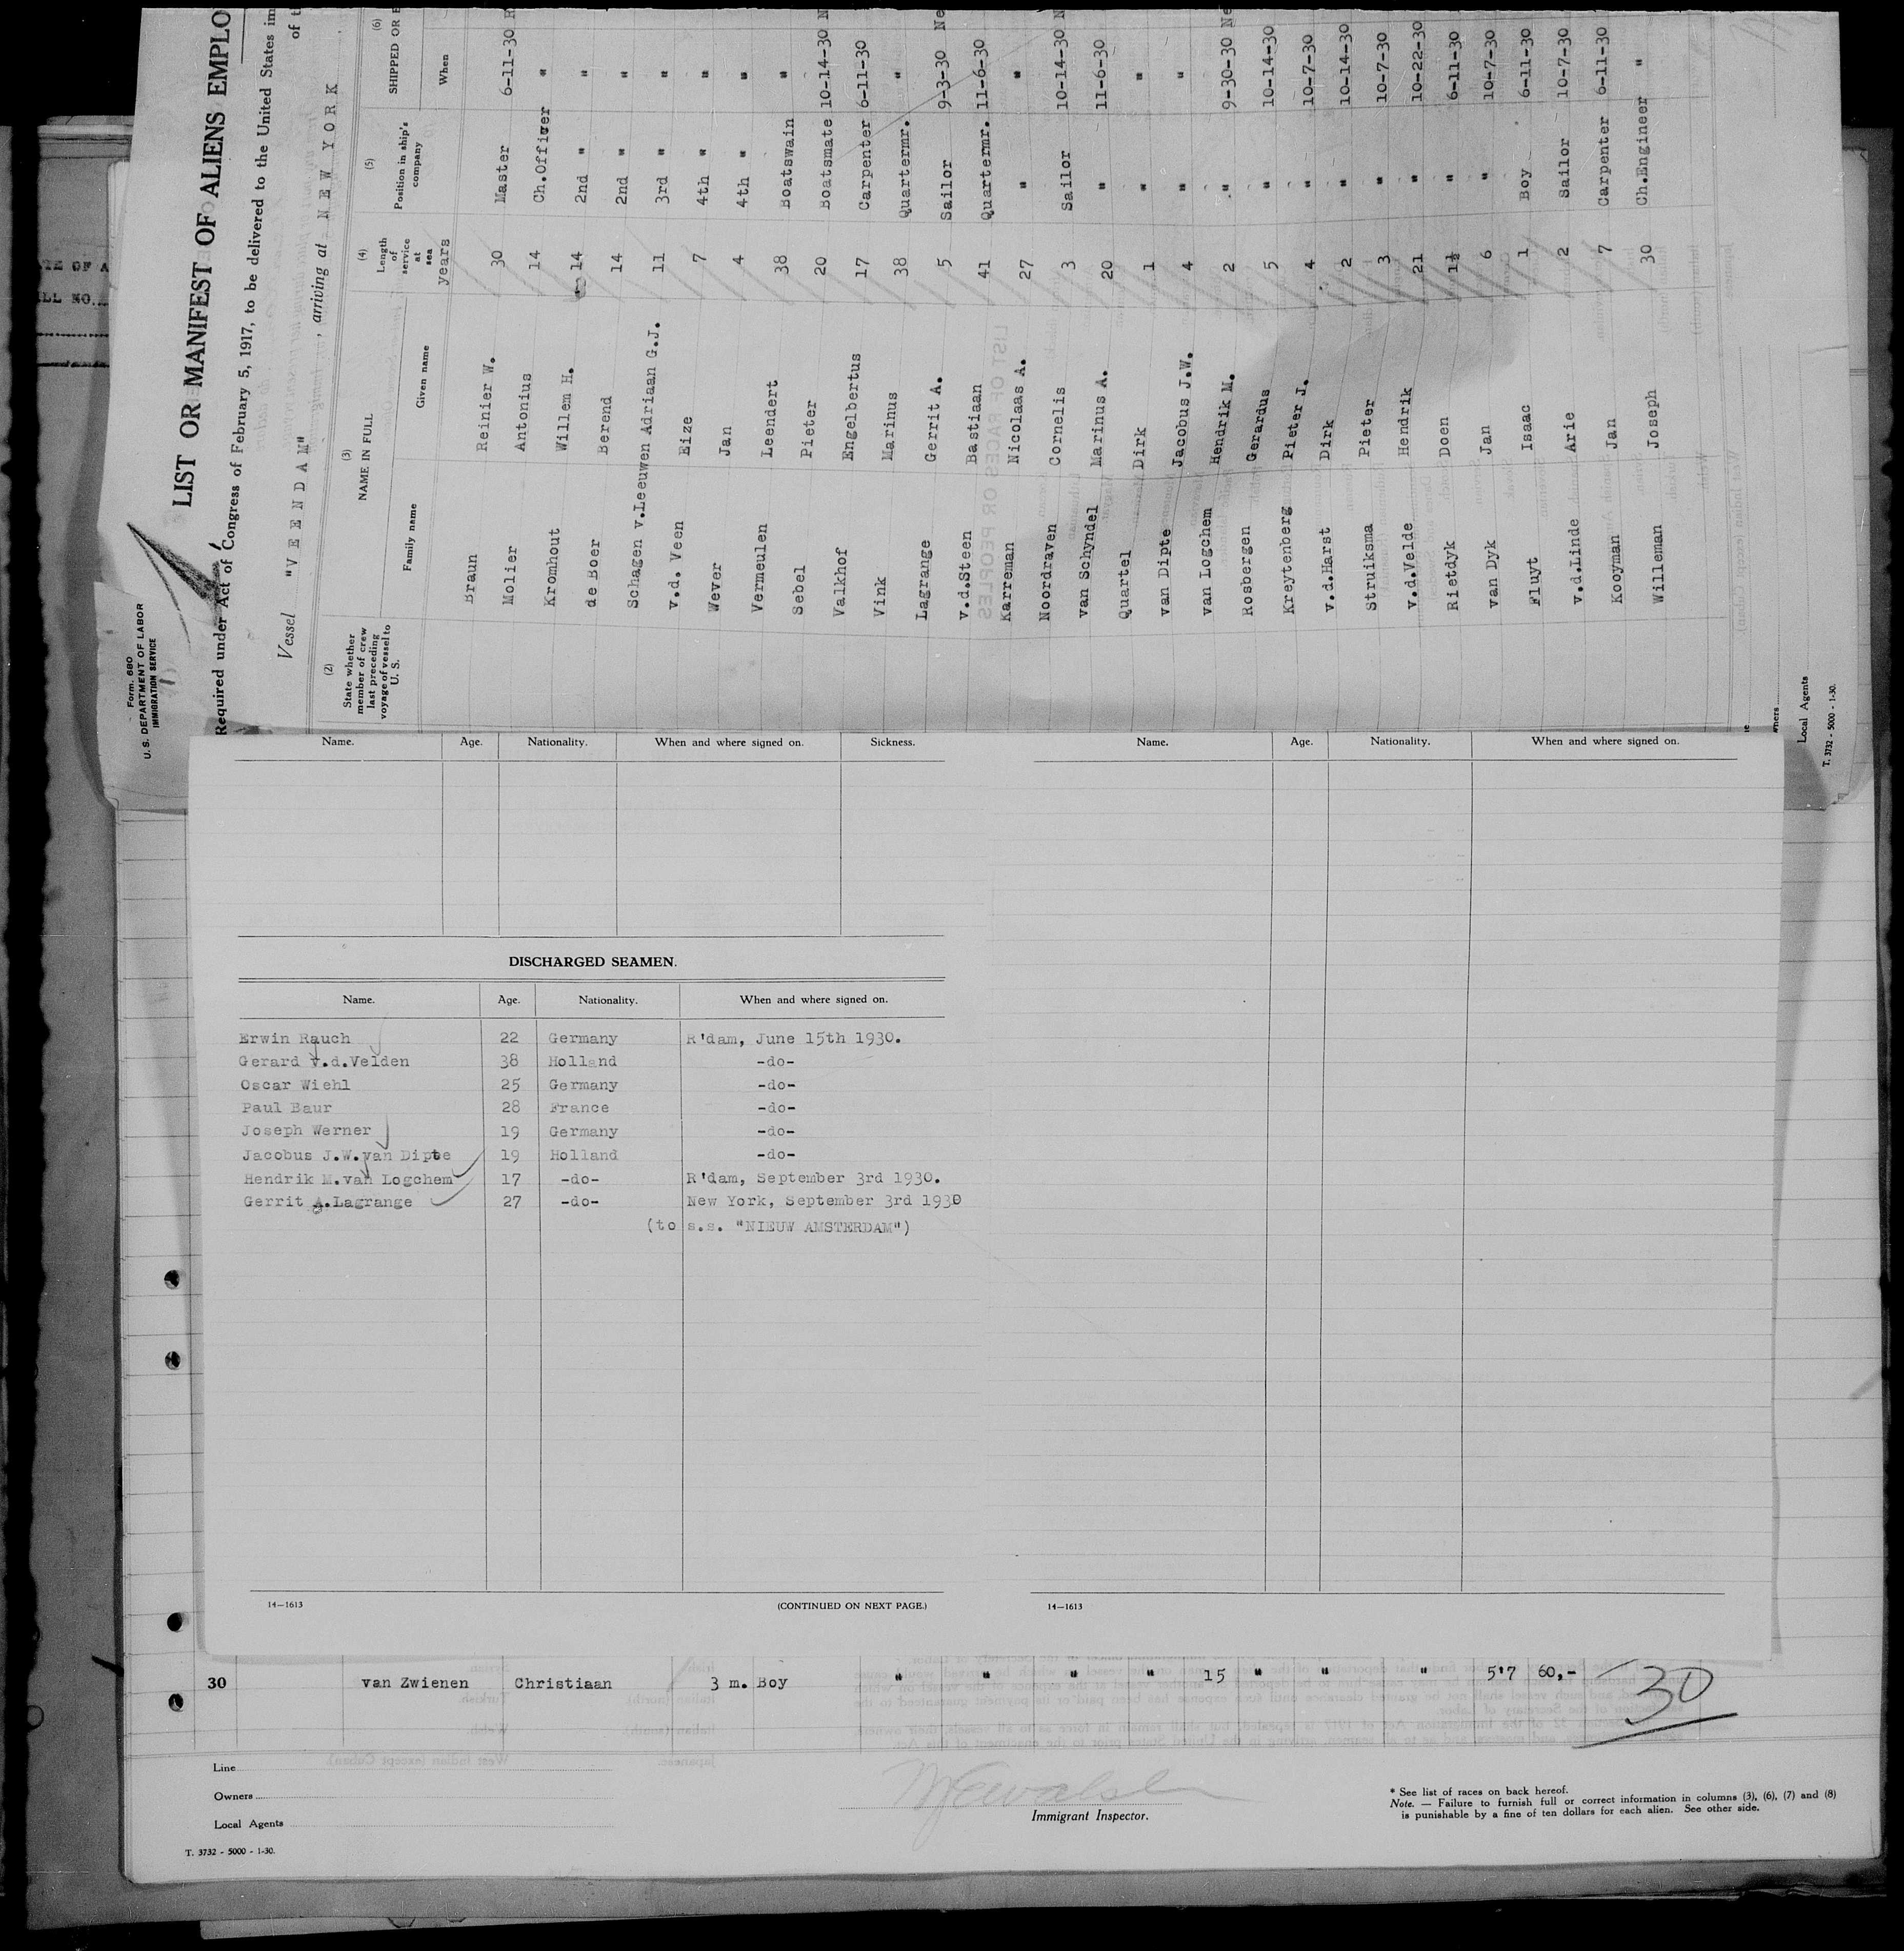 Form 680
U. S. DEPARTMENT OF LABOR
IMMIGRATION SERVICE
LIST OR MANIFEST OF ALIENS EMPLO
Required under Act of Congress of February 5, 1917, to be delivered to the United States im
of t
Vessel "VEENDAM", arriving at NEW YORK
(2) (3) (4) (5) (6)
State whether member of crew last preceding voyage of vessel to U. S.
NAME IN FULL
Family name Given name
Length of service at sea
years
Position in ship's company
SHIPPED OR E
When
Braun Reinier W. 30 Master 6-11-30 R
Molier Antonius 14 Ch.Officer "
Kromhout Willem H. 14 2nd " "
de Boer Berend 14 2nd " "
Schagen v.Leeuwen Adriaan G.J. 11 3rd " "
v.d. Veen Eize 7 4th " "
Wever Jan 4 4th " "
Vermeulen Leendert 38 Boatswain "
Sebel Pieter 20 Boatsmate 10-14-30 N
Valkhof Engelbertus 17 Carpenter 6-11-30
Vink Marinus 38 Quartermr. "
Lagrange Gerrit A. 5 Sailor 9-3-30 Ne
v.d.Steen Bastiaan 41 Quartermr. 11-6-30
Karreman Nicolaas A. 27 " "
Noordraven Cornelis 3 Sailor 10-14-30 N
van Schyndel Marinus A. 20 " 11-6-30
Quartel Dirk 1 " "
van Dipte Jacobus J.W. 4 " "
van Logchem Hendrik M. 2 " 9-30-30 Ne
Rosbergen Gerardus 5 " 10-14-30
Kreytenberg Pieter J. 4 " 10-7-30
v.d.Harst Dirk 2 " 10-14-30
Struiksma Pieter 3 " 10-7-30
v.d.Velde Hendrik 21 " 10-22-30
Rietdyk Doen 1½ " 6-11-30
van Dyk Jan 6 " 10-7-30
Fluyt Isaac 1 Boy 6-11-30
v.d.Linde Arie 2 Sailor 10-7-30
Kooyman Jan 7 Carpenter 6-11-30
Willeman Joseph 30 Ch.Engineer "
Local Agents
T. 3732 - 5000 - 1-30.
Name. Age. Nationality. When and where signed on. Sickness.
Name. Age. Nationality. When and where signed on.
DISCHARGED SEAMEN.
Name. Age. Nationality. When and where signed on.
Erwin Rauch 22 Germany R'dam, June 15th 1930.
Gerard v.d.Velden 38 Holland -do-
Oscar Wiehl 25 Germany -do-
Paul Baur 28 France -do-
Joseph Werner 19 Germany -do-
Jacobus J.W.van Dipte 19 Holland -do-
Hendrik M.van Logchem 17 -do- R'dam, September 3rd 1930.
Gerrit A.Lagrange 27 -do- New York, September 3rd 1930
(to s.s. "NIEUW AMSTERDAM")
14—1613 (CONTINUED ON NEXT PAGE.)
14—1613
30 van Zwienen Christiaan 3 m. Boy " " " " 15 " " " 5'7 60,-
30
Line
Owners
Local Agents
T. 3732 - 5000 - 1-30.
Immigrant Inspector.
* See list of races on back hereof.
Note. — Failure to furnish full or correct information in columns (3), (6), (7) and (8)
is punishable by a fine of ten dollars for each alien. See other side.